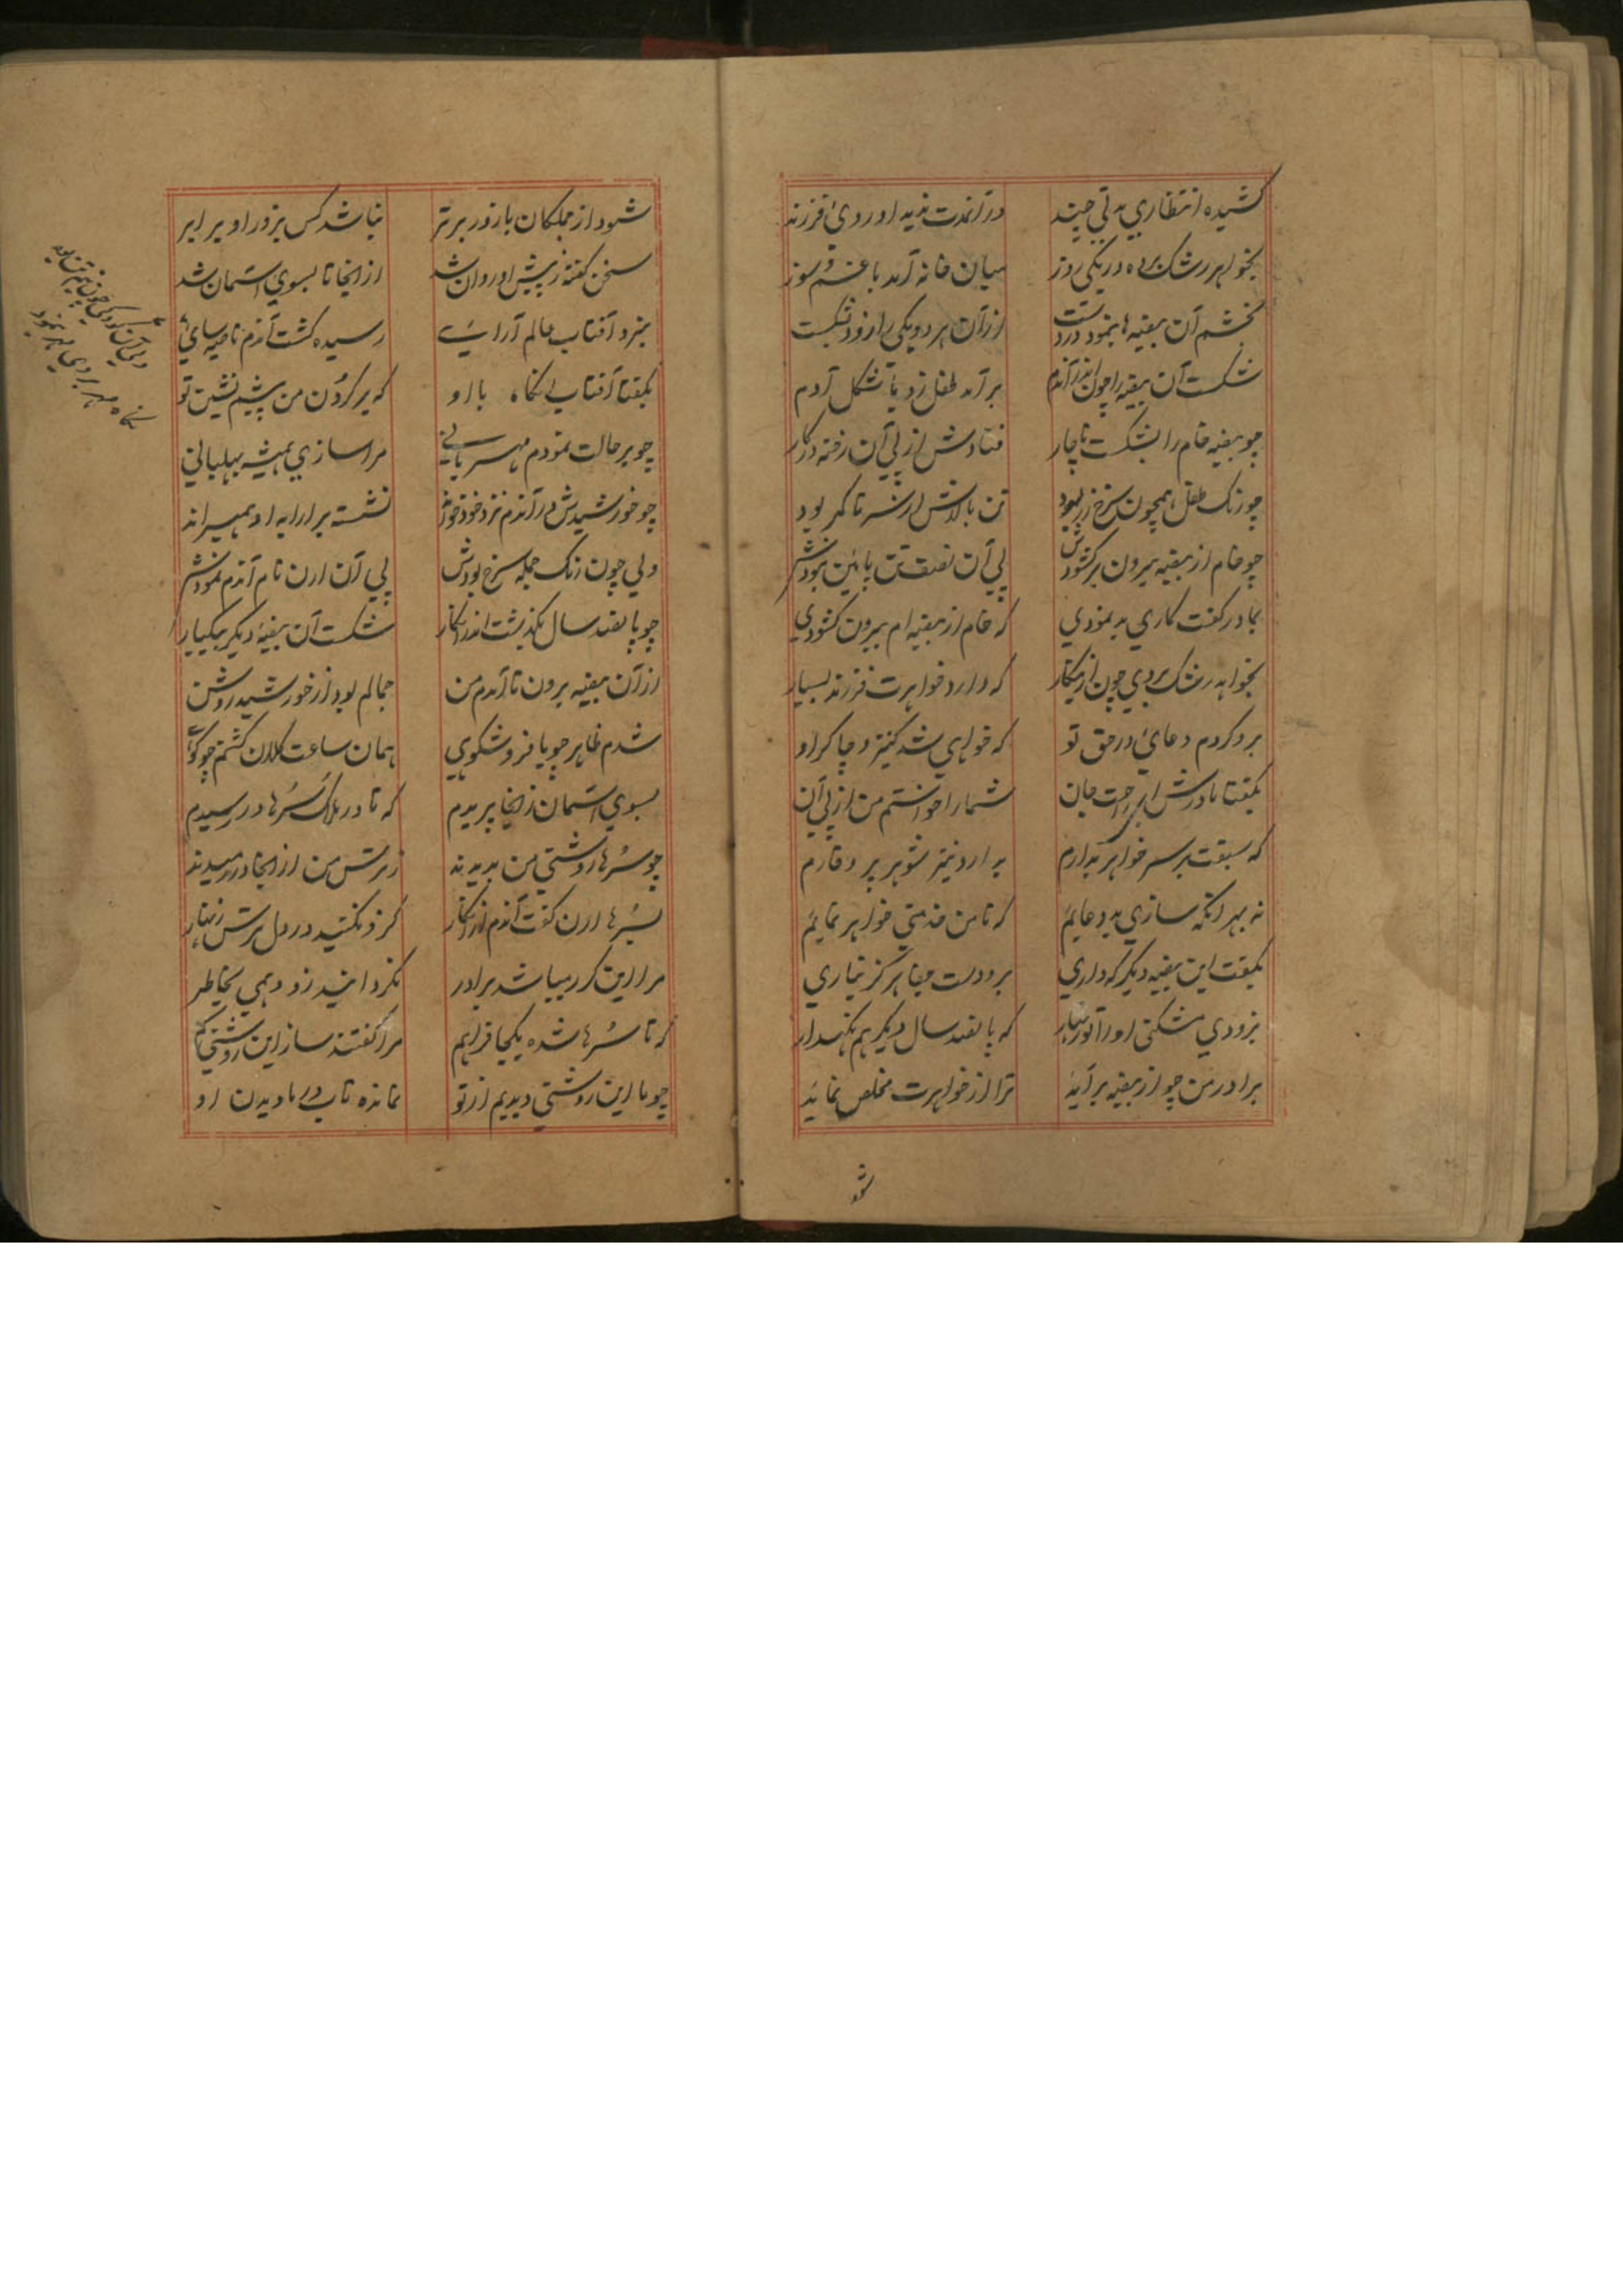 کشیده انتظاری مدتی چند در آنمدت ندید او روی فرزند
بخواهر رشک برده در یکی روز میان خانه آمد با غم و سوز
بخشم آن بیضه‌ها بنمود در دست از آن هر دو یکی را زود بشکست
شکست آن بیضه را چون اندر آندم برآمد طفل زو با شکل آدم
چو بیضه خام را بشکست ناچار فتادش از پی آن رفته در کار
چو رنگ طفل همچون سرخ زر بود تن بالاش از سر تا کمر بود
چو خام از بیضه بیرون برکشودش پی آن نصف تن پائین نبودش
بمادر گفت کاری بد نمودی که خام از بیضه‌ام بیرون کشودی
بخواهر رشک بردی چون ازینکار که دارد خواهرت فرزند بسیار
برو کردم دعائی در حق تو که خواهی شد کنیز و چاکر او
بگفتا مادرش ای راحت جان شما را خواستم من از پی آن
که سبقت بر سر خواهر بدارم بدارد نیز شوهر پر وقارم
نه بهر آنکه سازی بد دعایم که تا من خدمتی خواهر نمایم
بگفت این بیضه دیگر که داری برو دست جفا هرگز نیاری
بزودی مشکنی او را تو زنهار که پانصد سال دیگر هم نگهدار
برادر من چو از بیضه برآید ترا از خواهرت مخلص نماید
شود
شود از جملگان با زور برتر نباشد کس بزور او برابر
سخن گفته ز پیش او روان شد از آنجا تا بسوی آسمان شد
بنزد آفتاب عالم آرائے رسیده گشت آندم ناصیه سای
بگفتا آفتاب آنگاه با او که بر گردون من پیشم نشین تو
چو بر حالت نمودم مهربانے مرا سازی همیشه بهلبانی
چو خورشیدش در آندم نزد خود خواند نشسته بر ارابه او همیراند
ولی چون رنگ جمله سرخ بودش پی آن ارن نام آندم نمودش
چو پانصد سال بگذشت اندر آنکار شکست آن بیضهٔ دیگر بیکبار
از آن بیضه برون تا آمدم من جمالم بود از خورشید روشن
شدم ظاهر چو با فر و شکوهی همان ساعت کلان گشتم چو کوهی
بسوی آسمان ز آنجا پریدم که تا در ملک سُرها در رسیدم
چو سُرها روشنی من بدیدند ز ترس من از آنجا در رمیدند
بسُرها ارن گفت آندم ازو نکنید در دل ترس زنهار
مرا این کرر میباشد برادر نگردانید زو وهمی بخاطر
که تا سُرها شده یکجا فراهم مرا گفتند ساز این روشنی کم
چو ما این روشنی دیدیم از تو نمانده تاب در ما دیدن او